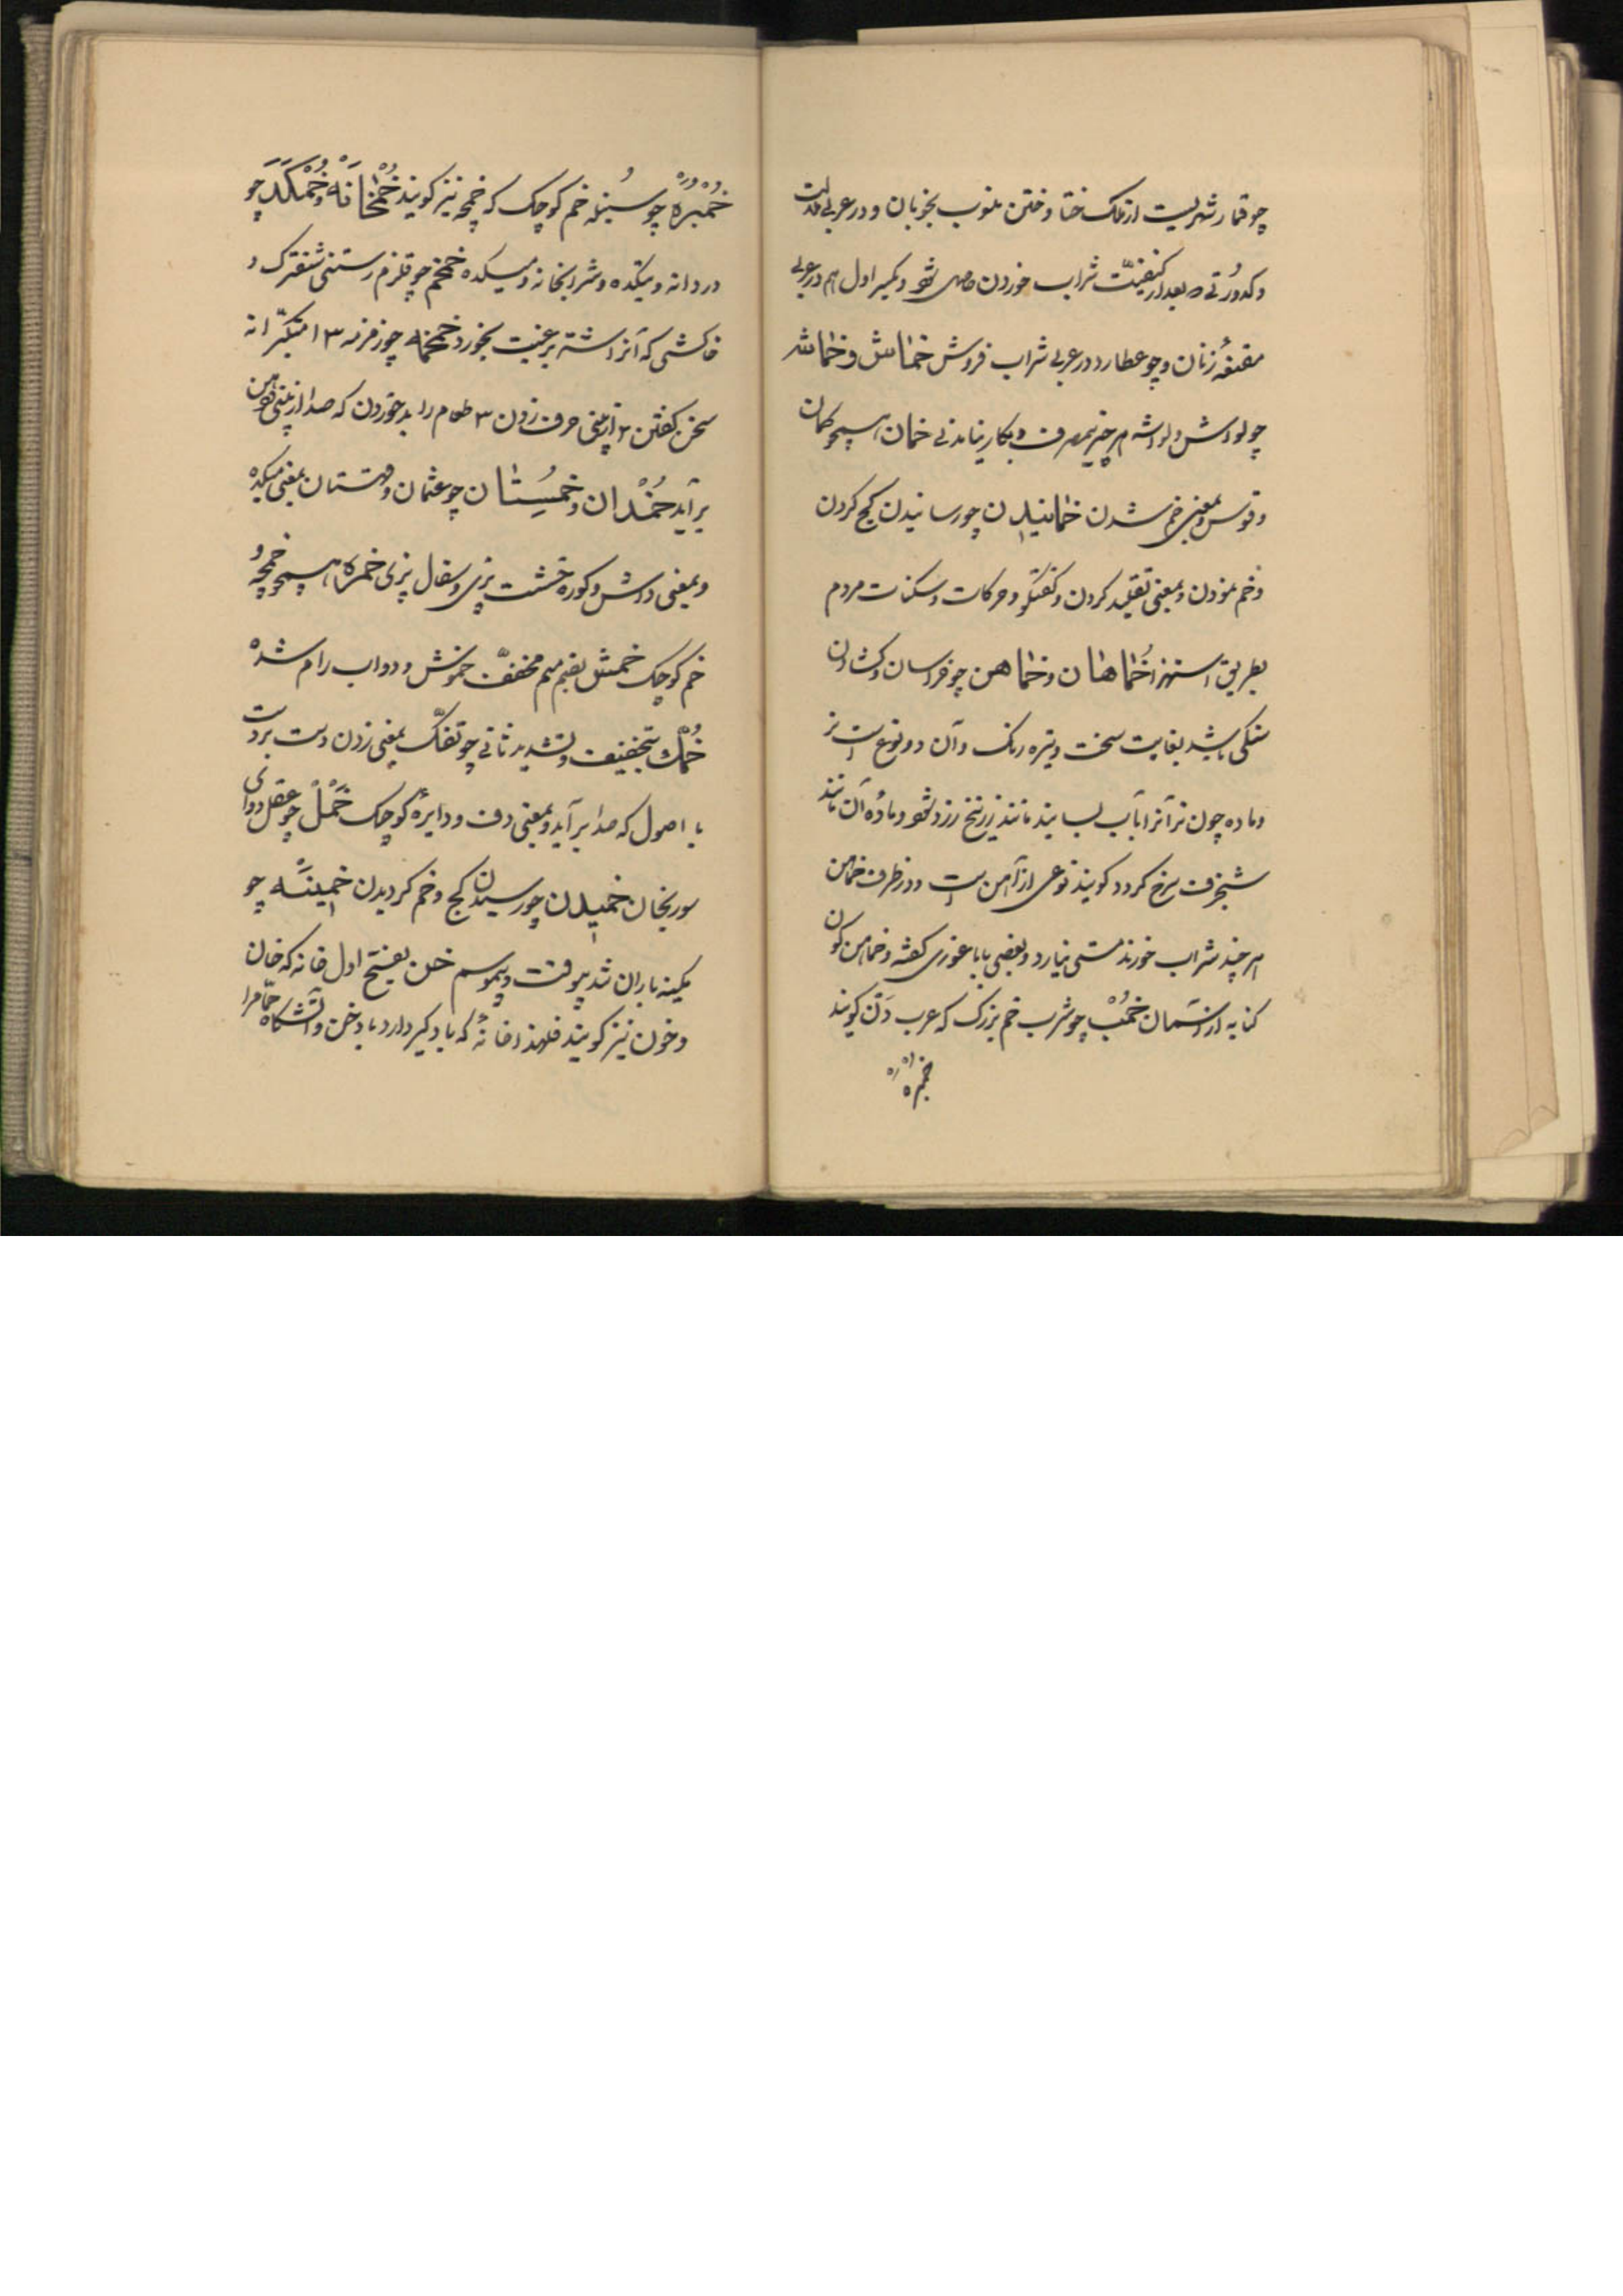 چو قمار شهریست از ملک ختا و ختن منسوب بخوبان و در عربی
و کدورتی که بعد از کیفیت شراب خوردن حاصل شود و بکسر اول هم در عربی
مقنعه زنان و چو عطار در عربی شراب فروش خماش و خماشه
چو لواش و لواشه هر چیز بیمصرف و بکار نیامدنی خمان همچو کمان
و قوس و بمعنی خم شدن خمانیدن چو رسانیدن کج کردن
و خم نمودن و بمعنی تقلید کردن و گفتگو و حرکات و سکنات مردم
بطریق استهزا خماهان و خماهن چو خراسان و
سنکی باشد بغایت سخت و تیره رنک و آن دو نوع است نر
و ماده چون نر آنرا بآب بسایند مانند زرنیخ زرد شود و ماده آن مانند
شنجرف سرخ کردد کویند نوعی از آهن است و در ظرف خماهن
هر چند شراب خورند مستی نیارد و بعضی بابا غوری کفته و خماهن کون
کنایه از آسمان خمب چو شرب خم بزرک که عرب دن کویند
خمبره
خمبره چو سنبله خم کوچک که خمچه نیز کویند خمخانه و خمکده چو
دردانه و بتکده و شرابخانه و میکده خمخم چو قلزم رستنی شفترک و
خاکشی که آنرا اشتر برغبت بخورد خمخمه چو زمزمه ۱ متکبرانه
سخن کفتن ۲ از بینی حرف زدن ۳ طعام را بد خوردن که صدا از بینی و دهن
برآید خمدان و خمستان چو عثمان و بمعنی میکده
و بمعنی داش و کوره خشت پزی و سفال پزی خمره همچو خمچه و
خم کوچک خمش بضم میم مخفف خموش و دواب رام شده
خمک بتخفیف و تشدید ثانی چو تفک بمعنی زدن دست بر دست
با اصول که صدا برآید و بمعنی دف و دایره کوچک خمل چو عقل دوای
سورنجان خمیدن چو رسیدن کج و خم کردیدن خمینه چو
کمینه باران تند بیوقت و بیموسم خن بفتح اول خانه که خان
و خون نیز کویند فلهذا خانه که بادکیر دارد بادخن و آتشکاه حمام را